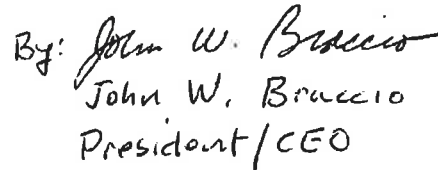 By: John W. Braccio
John W. Braccio
President/CEO